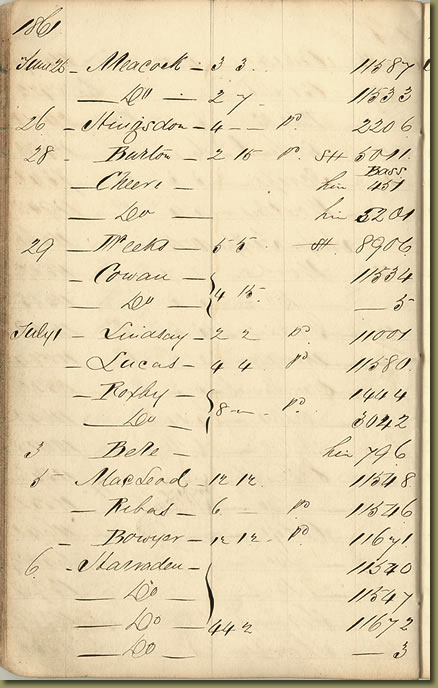 1861
June 25 - Meacock - 3 3. 11587
— Do — 2 7 11533
26 - Kingsdon - 4 - - pd 2206
28 - Burton - 2 15 pd. SH 5011.
Bass
- Cheeri - hire 451
— Do — hire 5201
29 - Weeks - 5 5 SH. 8906
- Cowan - 11534
— Do — 4 15. — 5
July 1 - Lindsay - 2 2 pd 11001
- Lucas - 4 4 pd 11580
- Roxby - 1444
Do — 8 - - pd. 3042
3 Bele - hire 796
5 - MacLeod - 12 12. 11548
- Ribas - 6 pd 11546
- Bowyer - 12 12 - pd 11671
6 - Harraden - 11540
— Do — 11547
— Do — 44 2 11672
— Do — — 3